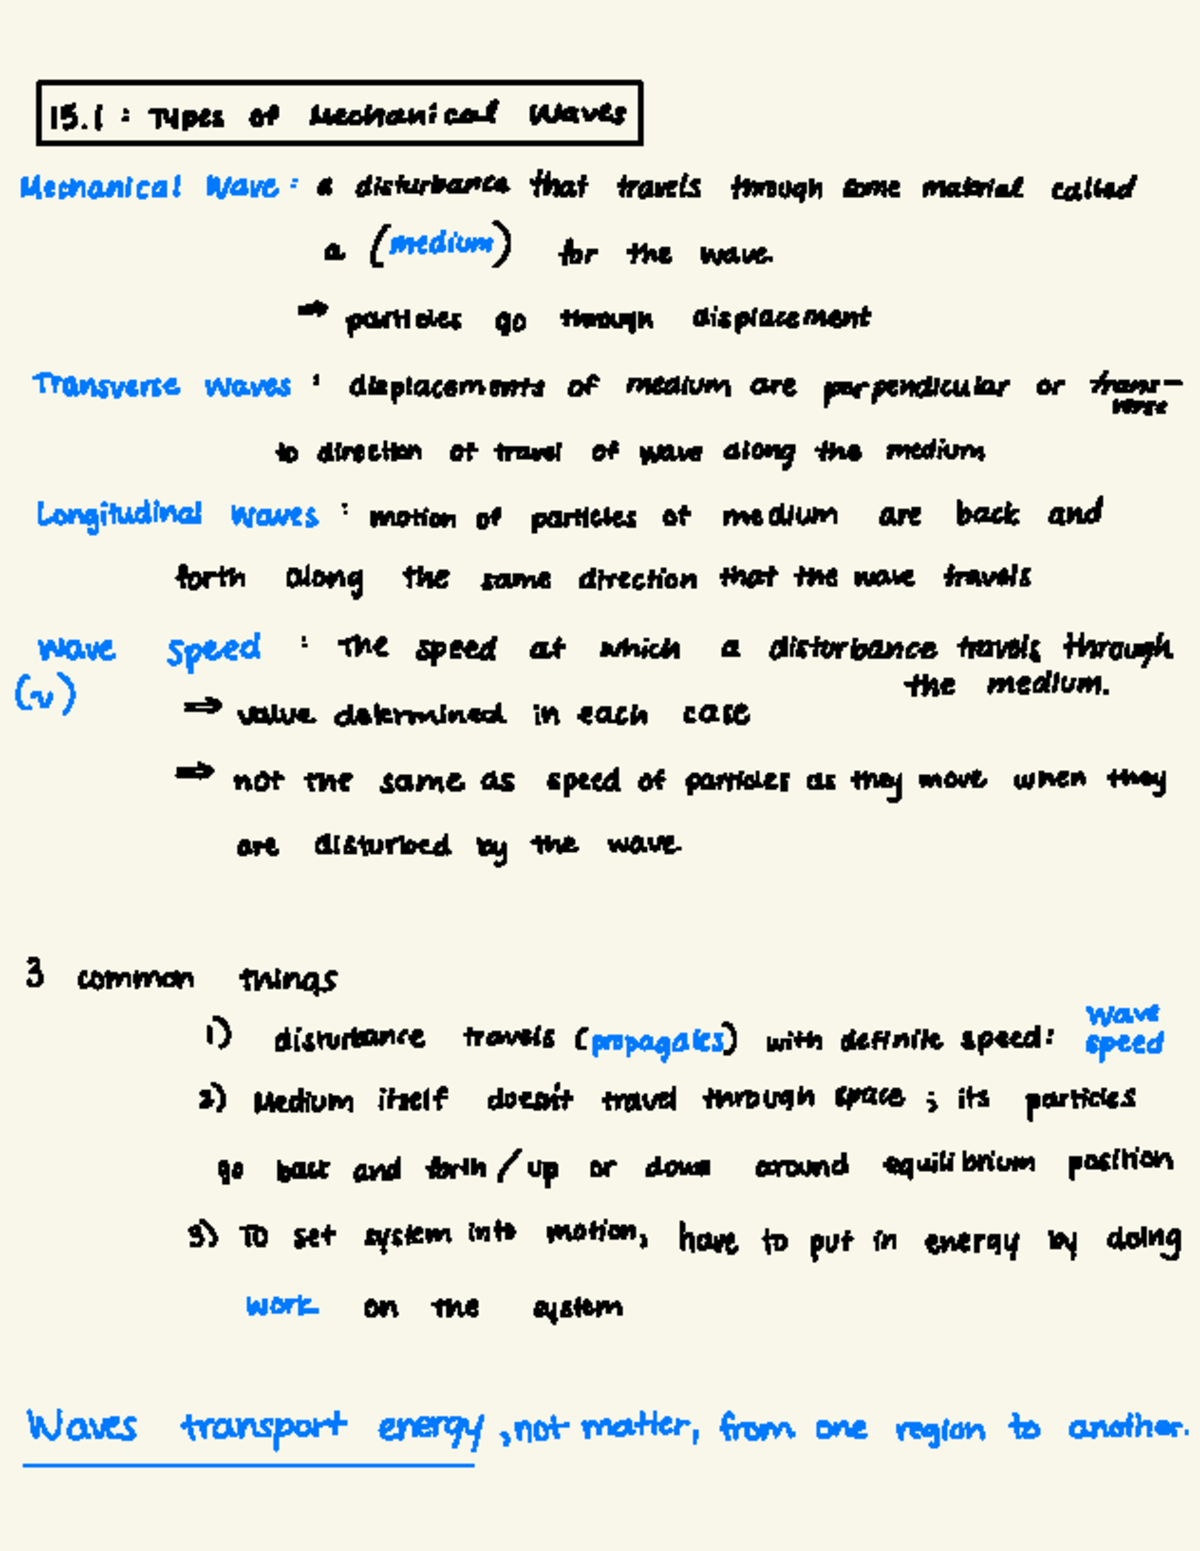 15.1 : Types of Mechanical Waves
Mechanical Wave : a disturbance that travels through some material called
a (medium) for the wave.
⇒ particles go through displacement
Transverse waves : displacements of medium are perpendicular or trans-
verse
to direction of travel of wave along the medium
Longitudinal waves : motion of particles of medium are back and
forth along the same direction that the wave travels
wave speed : The speed at which a disturbance travels through
the medium.
(v)
⇒ value determined in each case
⇒ not the same as speed of particles as they move when they
are disturbed by the wave.
3 common things
1) disturbance travels (propagates) with definite speed: wave
speed
2) Medium itself doesn't travel through space ; its particles
go back and forth / up or down around equilibrium position
3) To set system into motion, have to put in energy by doing
work on the system
Waves transport energy, not matter, from one region to another.